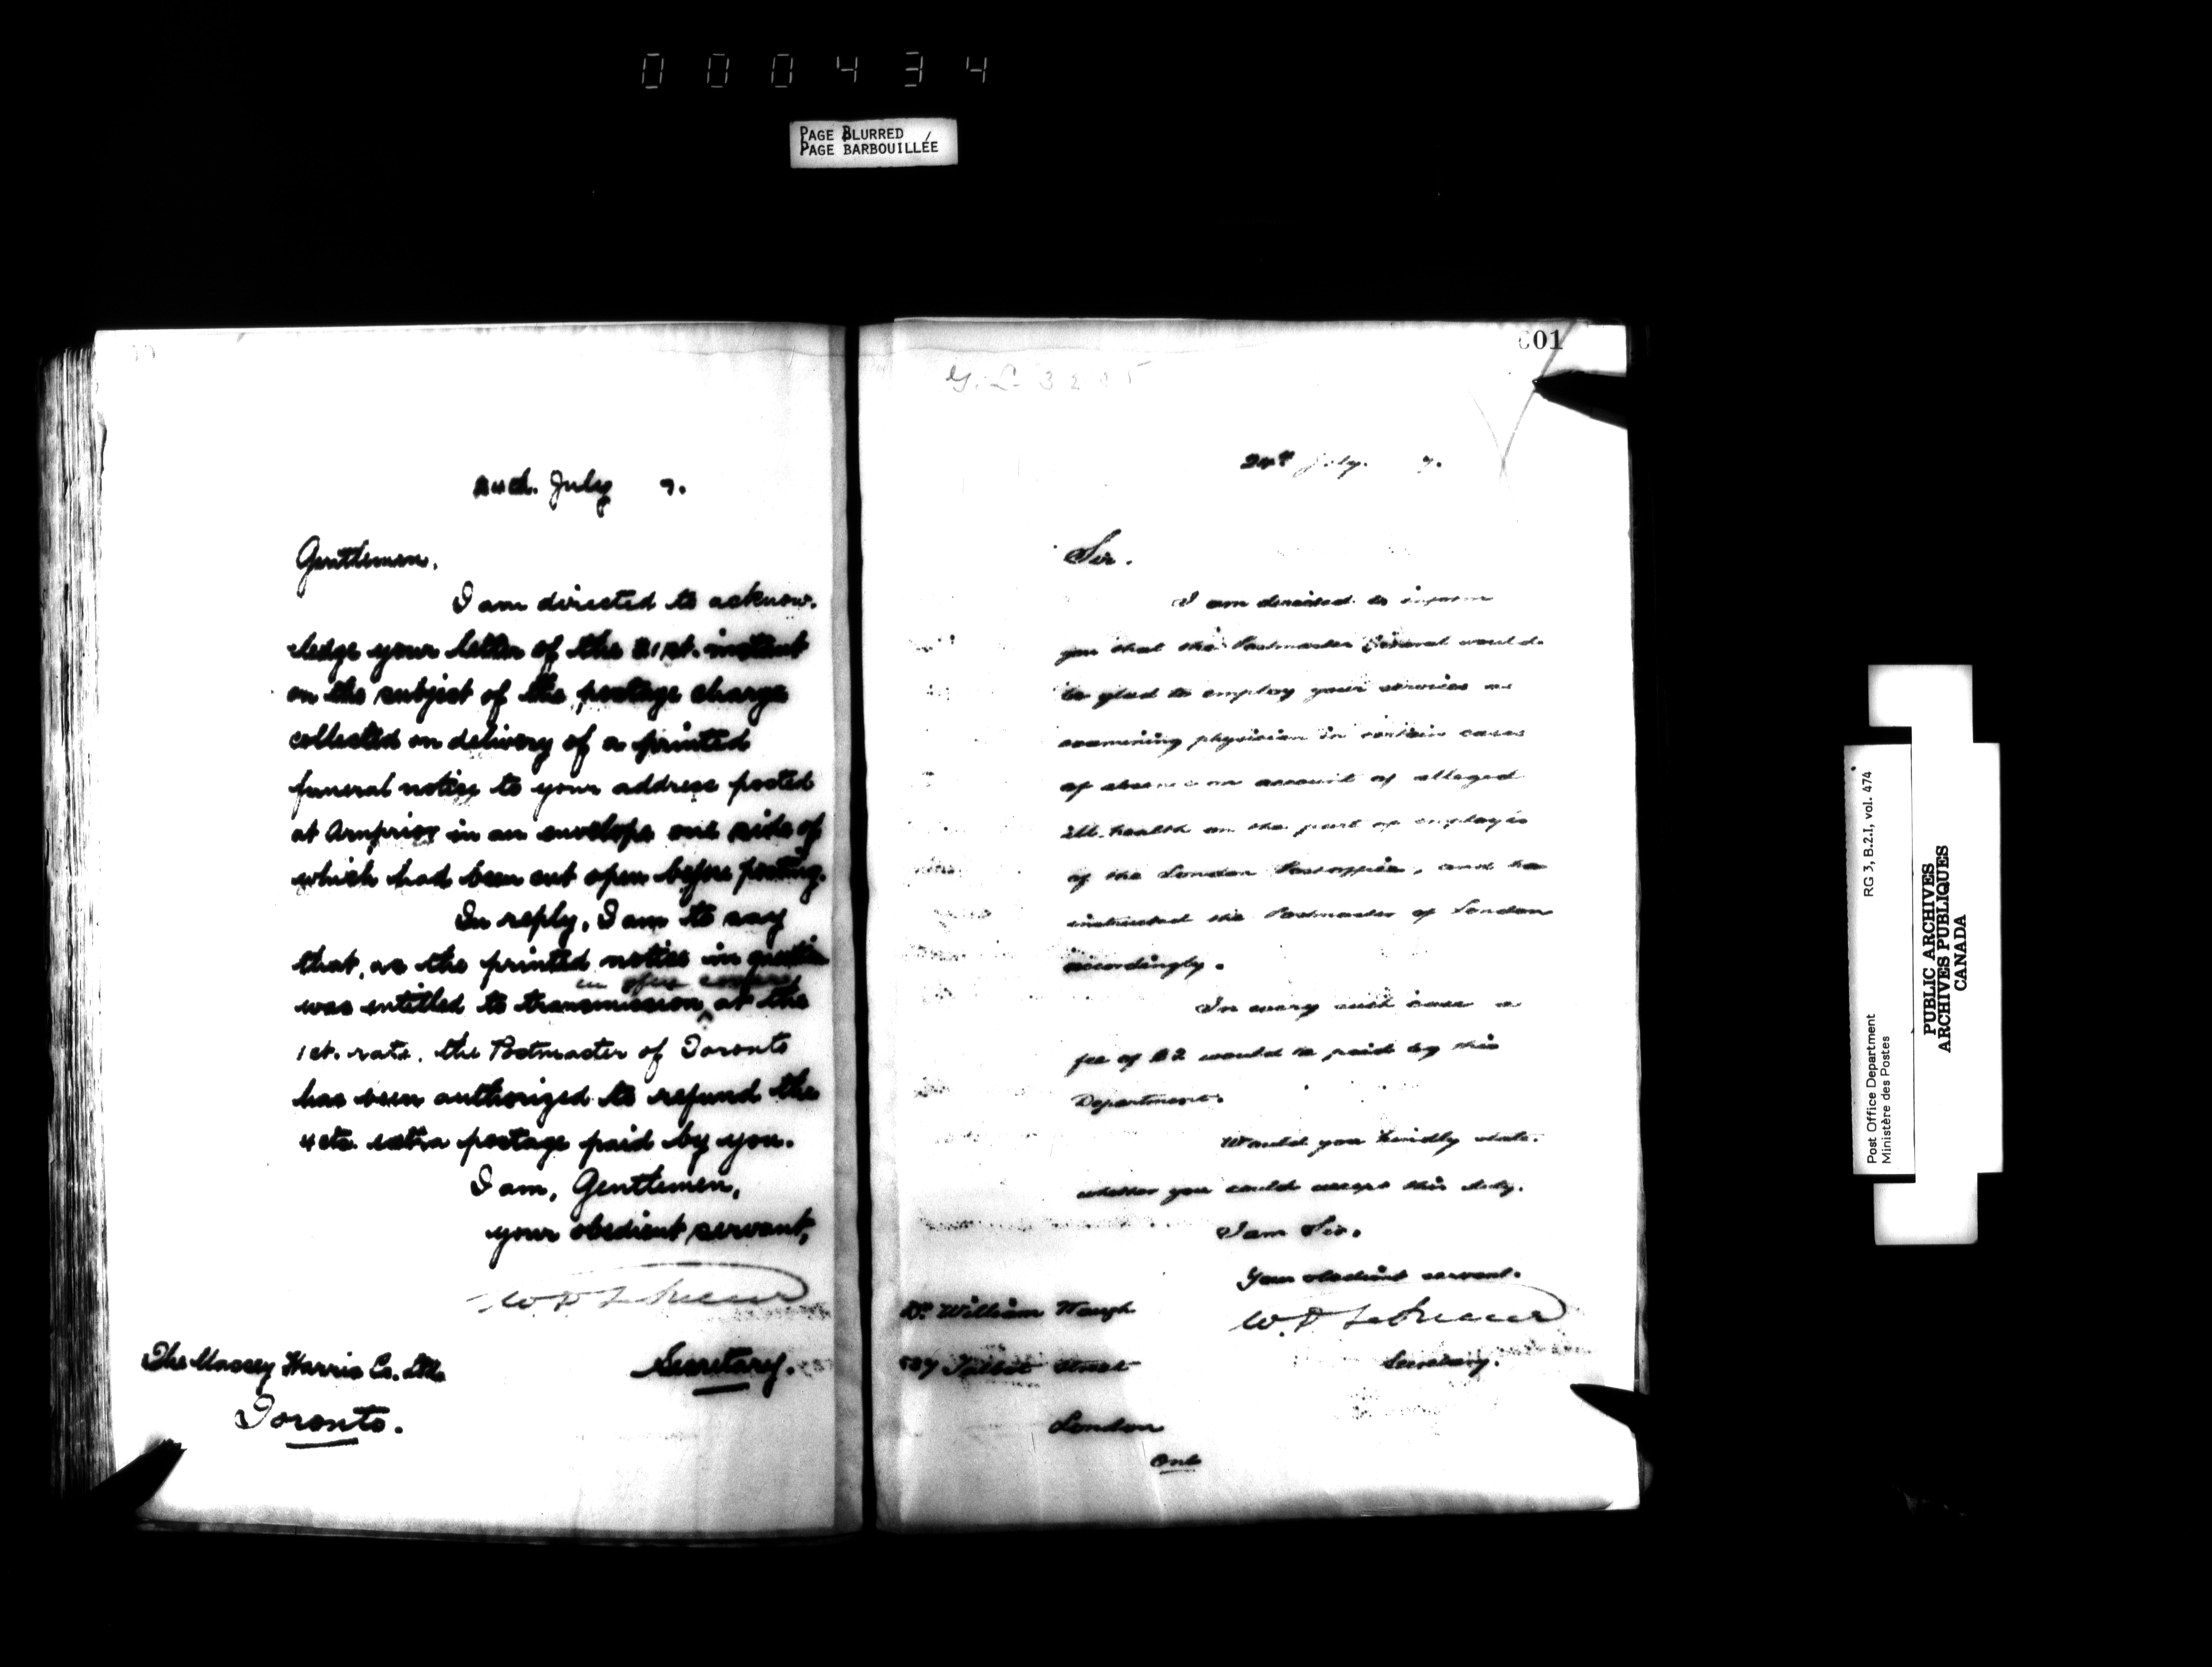 000434
PAGE BLURRED
PAGE BARBOUILLÉE
24th. July 7.
Gentlemen.
I am directed to acknow-
ledge your letter of the 21st. instant
on the subject of the postage charge
collected on delivery of a printed
funeral notice to your address posted
at Arnprior in an envelope one side of
which had been cut open before posting.
In reply, I am to say
that, as the printed notice in question
in open
was entitled to transmission at the
1ct. rate, the Postmaster of Toronto
has been authorized to refund the
4 cts. extra postage paid by you.
I am, Gentlemen,
your obedient servant,
Secretary.
The Massey Harris Co. Ltd.
Toronto.
601
G. L. 32
24th July. 7.
Sir.
I am directed to inform
you that the Postmaster General would
be glad to employ your services as
examining physician in certain cases
of absence on account of alleged
ill-health on the part of employés
of the London Post office, and has
instructed the Postmaster of London
accordingly.
In every such case a
fee of $2 would be paid by this
Department.
Would you kindly state
whether you could accept this duty.
I am Sir.
Your obedient servant.
Secretary.
Dr. William Waugh
537 Talbot Street
London
Ont
Post Office Department RG 3, B.2.I, vol. 474
Ministère des Postes
PUBLIC ARCHIVES
ARCHIVES PUBLIQUES
CANADA